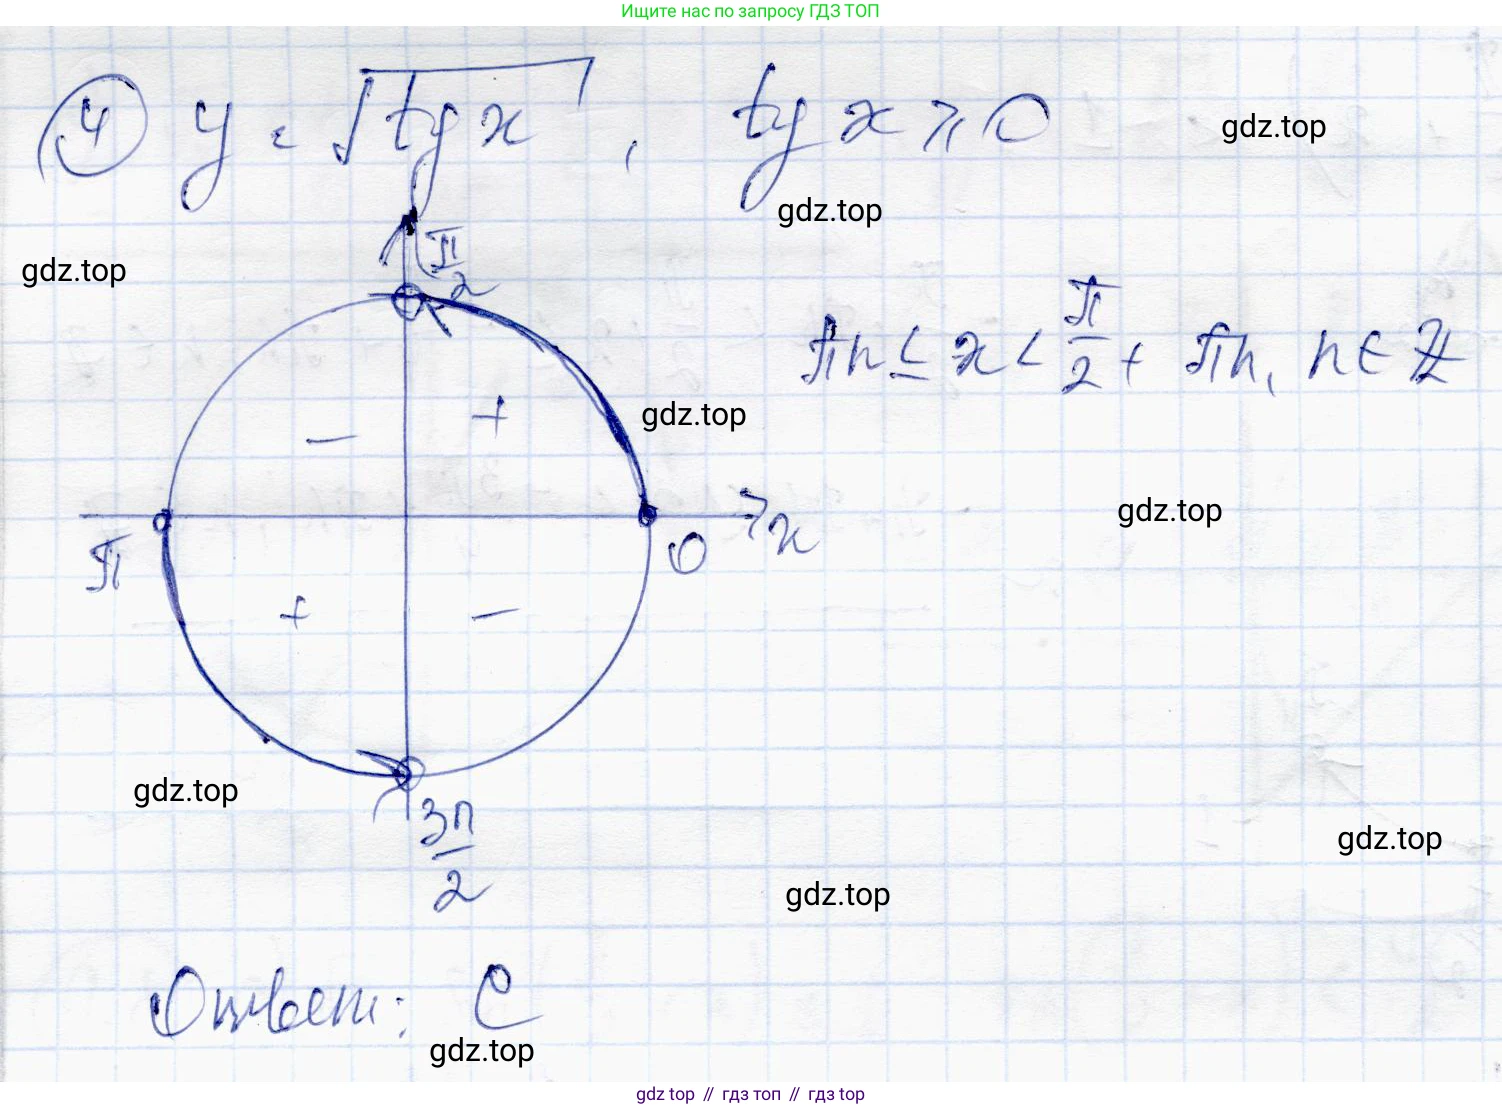 Ищите нас по запросу ГДЗ ТОП
④ y = √tg x , tg x ⩾ 0
gdz.top
gdz.top
gdz.top
π/2
πn ≤ x < π/2 + πn, n ∈ Z
− +
gdz.top
π 0 x
gdz.top
+ −
gdz.top
3π/2
gdz.top
gdz.top
Ответ: C
gdz.top
gdz top // гдз топ // gdz top